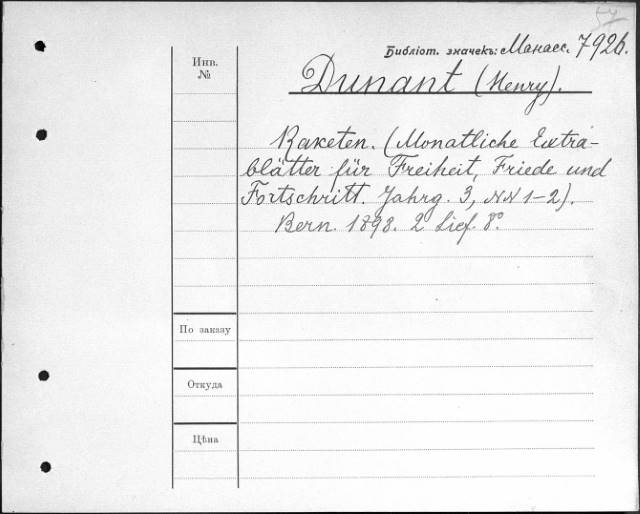 54
Библіот. значекъ: Манасс. 7926.
Инв.
№
Dunant (Henry).
Raketen. (Monatliche Extra-
blätter für Freiheit, Friede und
Fortschritt. Jahrg. 3, NN 1-2).
Bern. 1898. 2 Lief. 8º.
По заказу
Откуда
Цѣна